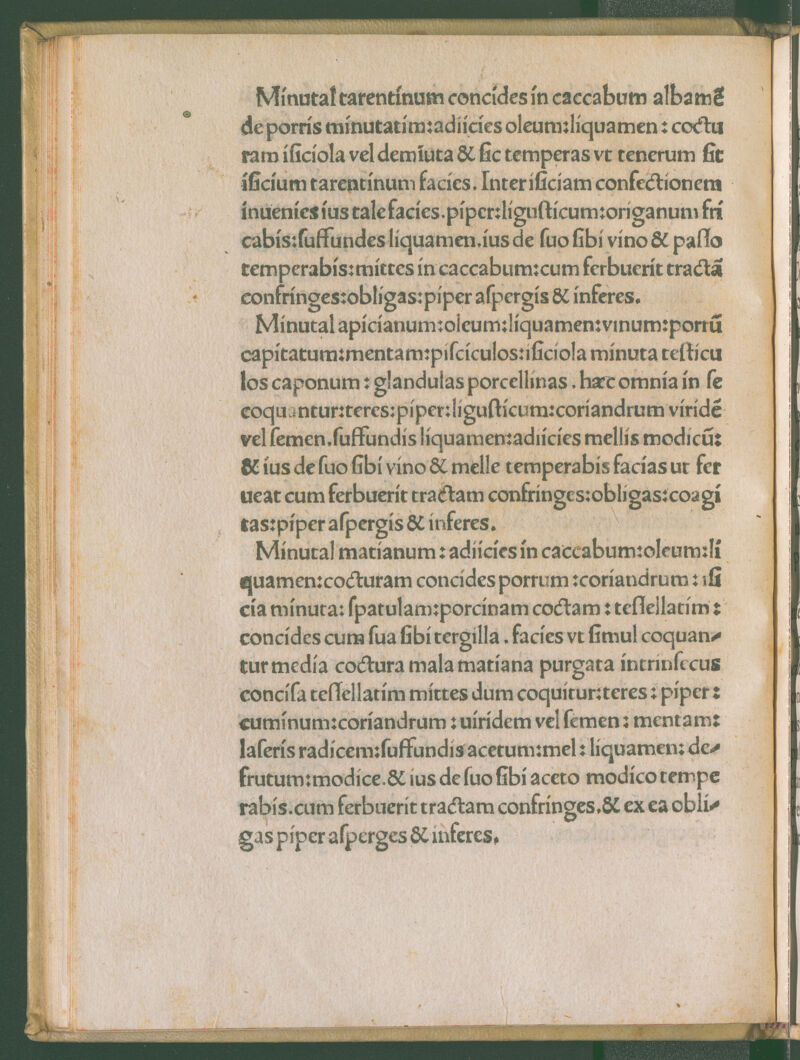 Minutal tarentinum concides in caccabum albamẽ
de porris minutatim:adiicies oleum:liquamen: coctu
ram ificiola vel demiuta & ſic temperas vt tenerum ſit
iſicium tarentinum facies. Inter iſiciam confectionem
inuenies ius tale facies.piper:liguſticum:origanum fri
cabis:ſuffundes liquamen.ius de ſuo ſibi vino & paſſo
temperabis:mittes in caccabum:cum ferbuerit tractã
confringes:obligas:piper aſpergis & inferes.
Minutal apicianum:oleum:liquamen:vinum:porrũ
capitatum:mentam:piſciculos:iſiciola minuta teſticu
los caponum: glandulas porcellinas. hæc omnia in ſe
coquuntur:teres:piper:liguſticum:coriandrum viridẽ
vel ſemen.ſuffundis liquamen:adiicies mellis modicũ:
& ius de ſuo ſibi vino & melle temperabis facias ut fer
ueat cum ferbuerit tractam confringes:obligas:coagi
tas:piper aſpergis & inferes.
Minutal matianum: adiicies in caccabum:oleum:li
quamen:cocturam concides porrum:coriandrum: iſi
cia minuta: ſpatulam:porcinam coctam: teſſellatim:
concides cum ſua ſibi tergilla. facies vt ſimul coquan⸗
tur media coctura mala matiana purgata intrinſecus
conciſa teſſellatim mittes dum coquitur:teres: piper:
cuminum:coriandrum: uiridem vel ſemen: mentam:
laſeris radicem:ſuffundis acetum:mel: liquamen: de⸗
frutum:modice.& ius de ſuo ſibi aceto modico tempe
rabis.cum ferbuerit tractam confringes.& ex ea obli⸗
gas piper aſperges & inferes.